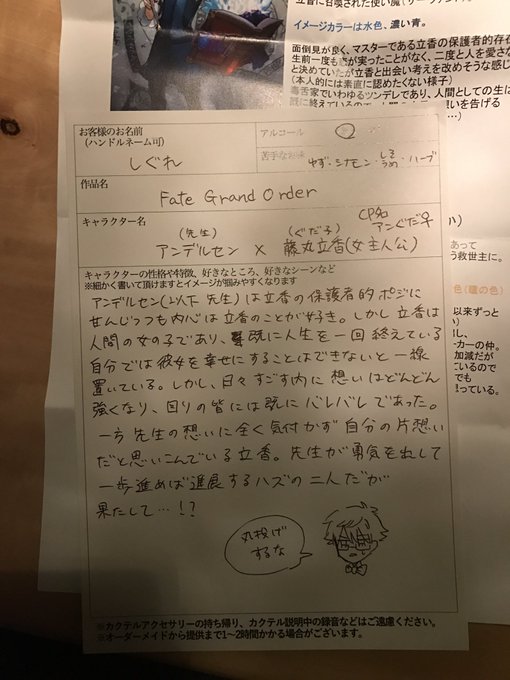 立香に召喚された使い魔（サーヴァント）
イメージカラーは水色、濃い青。
面倒見が良く、マスターである立香の保護者的存在
生前一度も恋が実ったことがなく、二度と人を愛さな
と決めていたが立香と出会い考えを改めそうな感じ
（本人的には素直に認めたくない様子）
毒舌家でいわゆるツンデレであり、人間としての生は
既に終えているの
いを告げる
お客様のお名前
（ハンドルネーム可）
しぐれ
アルコール
○
苦手なお味
ゆず・シナモン・しそ うめ・ハーブ
作品名
Fate Grand Order
キャラクター名
（先生）
アンデルセン × 藤丸立香(女主人公)
（ぐだ子）
CP名
アンぐだ♀
キャラクターの性格や特徴、好きなところ、好きなシーンなど
※細かく書いて頂ますとイメージが掴みやすくなります
アンデルセン(以下 先生)は立香の保護者的ポジに
甘んじつつも内心は立香のことが好き。しかし立香は
人間の女の子であり、既に人生を一回終えている
自分では彼女を幸せにすることはできないと一線
置いている。しかし、日々すごす内に想いはどんどん
強くなり、回りの皆には既にバレバレであった。
一方先生の想いに全く気付かず自分の片想い
だと思いこんでいる立香。先生が勇気を出して
一歩進めば進展するハズの二人だが
果たして…!?
丸投げ
するな
※カクテルアクセサリーの持ち帰り、カクテル説明中の録音などはご遠慮ください。
※オーダーメイドから提供まで1〜2時間かかる場合がございます。
あって
う救世主に。
色（瞳の色）
以来ずっと
カーの仲。
加減だが
ているので
でも
っている。